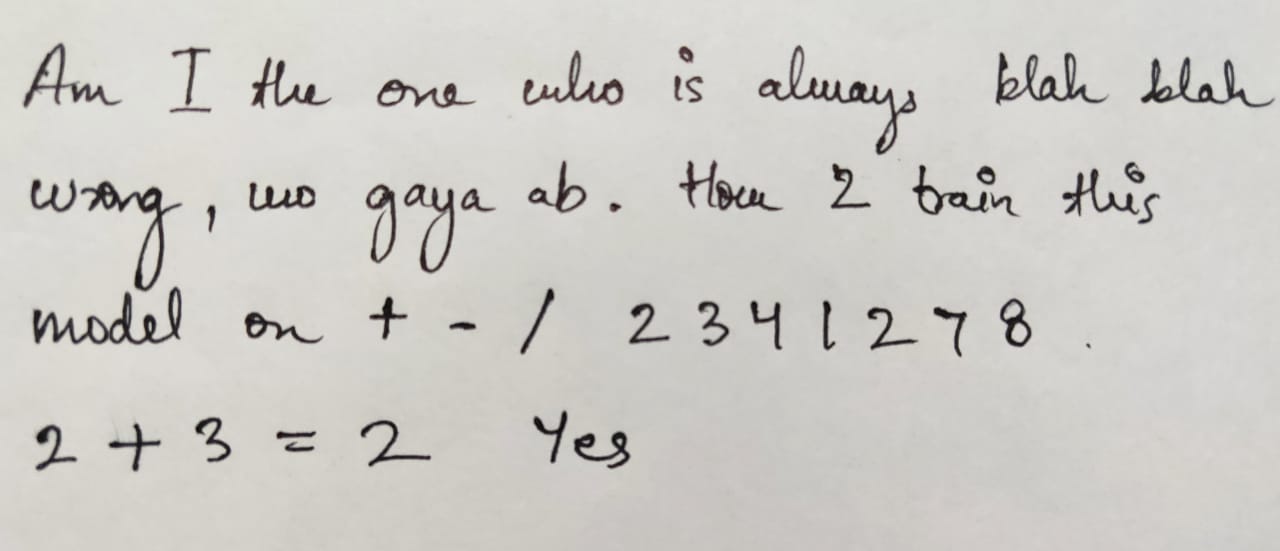 Am I the one who is always blah blah
wrong, wo gaya ab. How 2 train this
model on + - / 2341278.
2 + 3 = 2 Yes